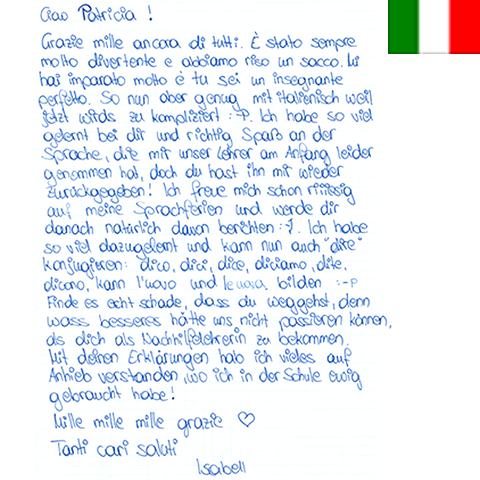 Ciao Patricia !
Grazie mille ancora di tutti. È stato sempre
molto divertente e abbiamo riso un sacco. Mi
hai imparato molto e tu sei un insegnante
perfetto. So nun aber genug mit italienisch weil
jetzt wirds zu kompliziert :-P. Ich habe so viel
gelernt bei dir und richtig Spaß an der
Sprache, die mir unser Lehrer am Anfang leider
genommen hat, doch du hast ihn mir wieder
zurückgegeben! Ich freue mich schon riiiesig
auf meine Sprachferien und werde dir
danach natürlich davon berichten :-). Ich habe
so viel dazugelernt und kann nun auch "dire"
konjugieren: dico, dici, dice, diciamo, dite,
dicono, kann l'uovo und le uova bilden :-P
Finde es echt schade, dass du weggehst, denn
wass besseres hätte uns nicht passieren können,
als dich als Nachhilfelehrerin zu bekommen.
Mit deinen Erklärungen hab ich vieles auf
Anhieb verstanden, wo ich in der Schule ewig
gebraucht habe!
Mille mille mille grazie ♡
Tanti cari saluti
Isabell